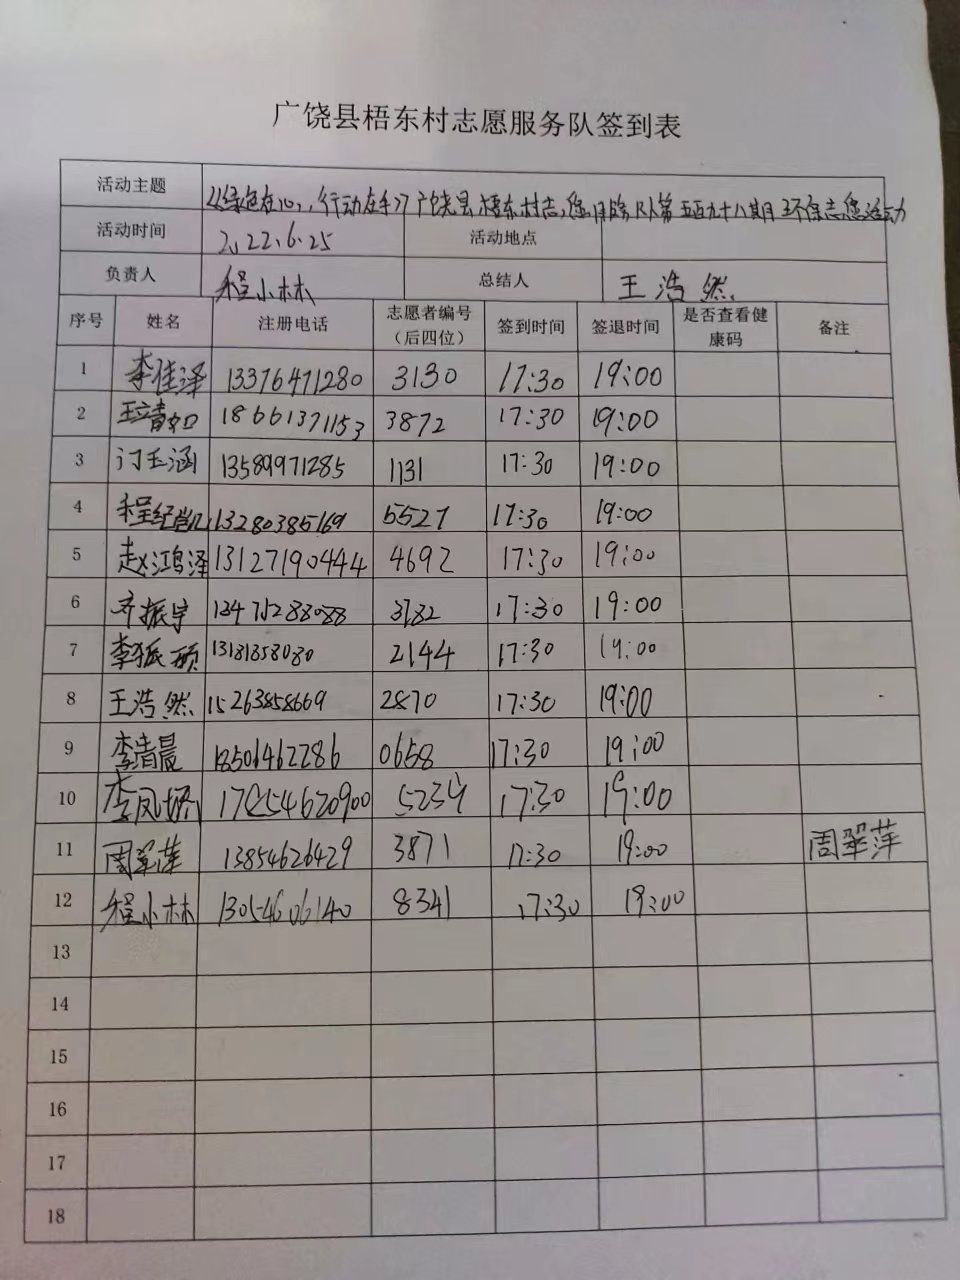 广饶县梧东村志愿服务队签到表
活动主题 绿色在心，行动在手 广饶县梧东村志愿服务队第五百九十八期环保志愿活动
活动时间 2022.6.25 活动地点
负责人 程小林 总结人 王浩然
序号 姓名 注册电话 志愿者编号（后四位） 签到时间 签退时间 是否查看健康码 备注
1 李佳泽 13376471280 3130 17:30 19:00
2 王靖如 18661371153 3872 17:30 19:00
3 玉涵 13589971285 1131 17:30 19:00
4 程纪凯 13280385169 5527 17:30 19:00
5 赵鸿泽 13127190444 4692 17:30 19:00
6 齐振宇 3782 17:30 19:00
7 李振硕 13181358080 2144 17:30 19:00
8 王浩然 15263858669 2870 17:30 19:00
9 李清晨 18506462286 0658 17:30 19:00
10 李凤娇 17854620900 5234 17:30 19:00
11 周翠萍 13854626429 3871 17:30 19:00 周翠萍
12 程小林 13054606140 8341 17:30 19:00
13
14
15
16
17
18